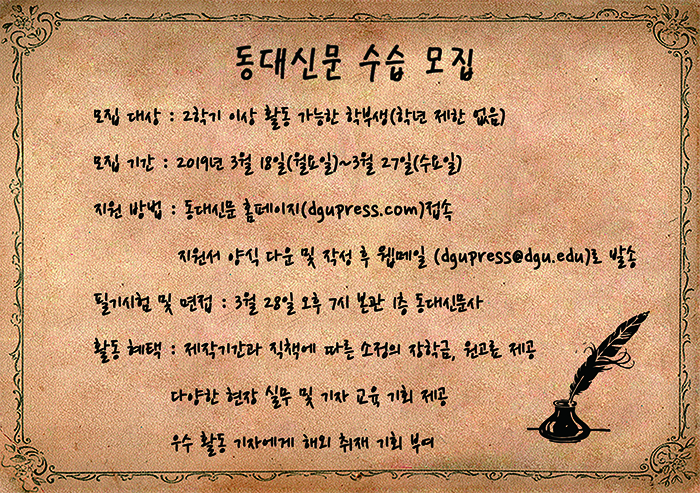 동대신문 수습 모집
모집 대상 : 2학기 이상 활동 가능한 학부생(학년 제한 없음)
모집 기간 : 2019년 3월 18일(월요일)~3월 27일(수요일)
지원 방법 : 동대신문 홈페이지(dgupress.com)접속
지원서 양식 다운 및 작성 후 웹메일 (dgupress@dgu.edu)로 발송
필기시험 및 면접 : 3월 28일 오후 7시 본관 1층 동대신문사
활동 혜택 : 제작기간과 직책에 따른 소정의 장학금, 원고료 제공
다양한 현장 실무 및 기자 교육 기회 제공
우수 활동 기자에게 해외 취재 기회 부여